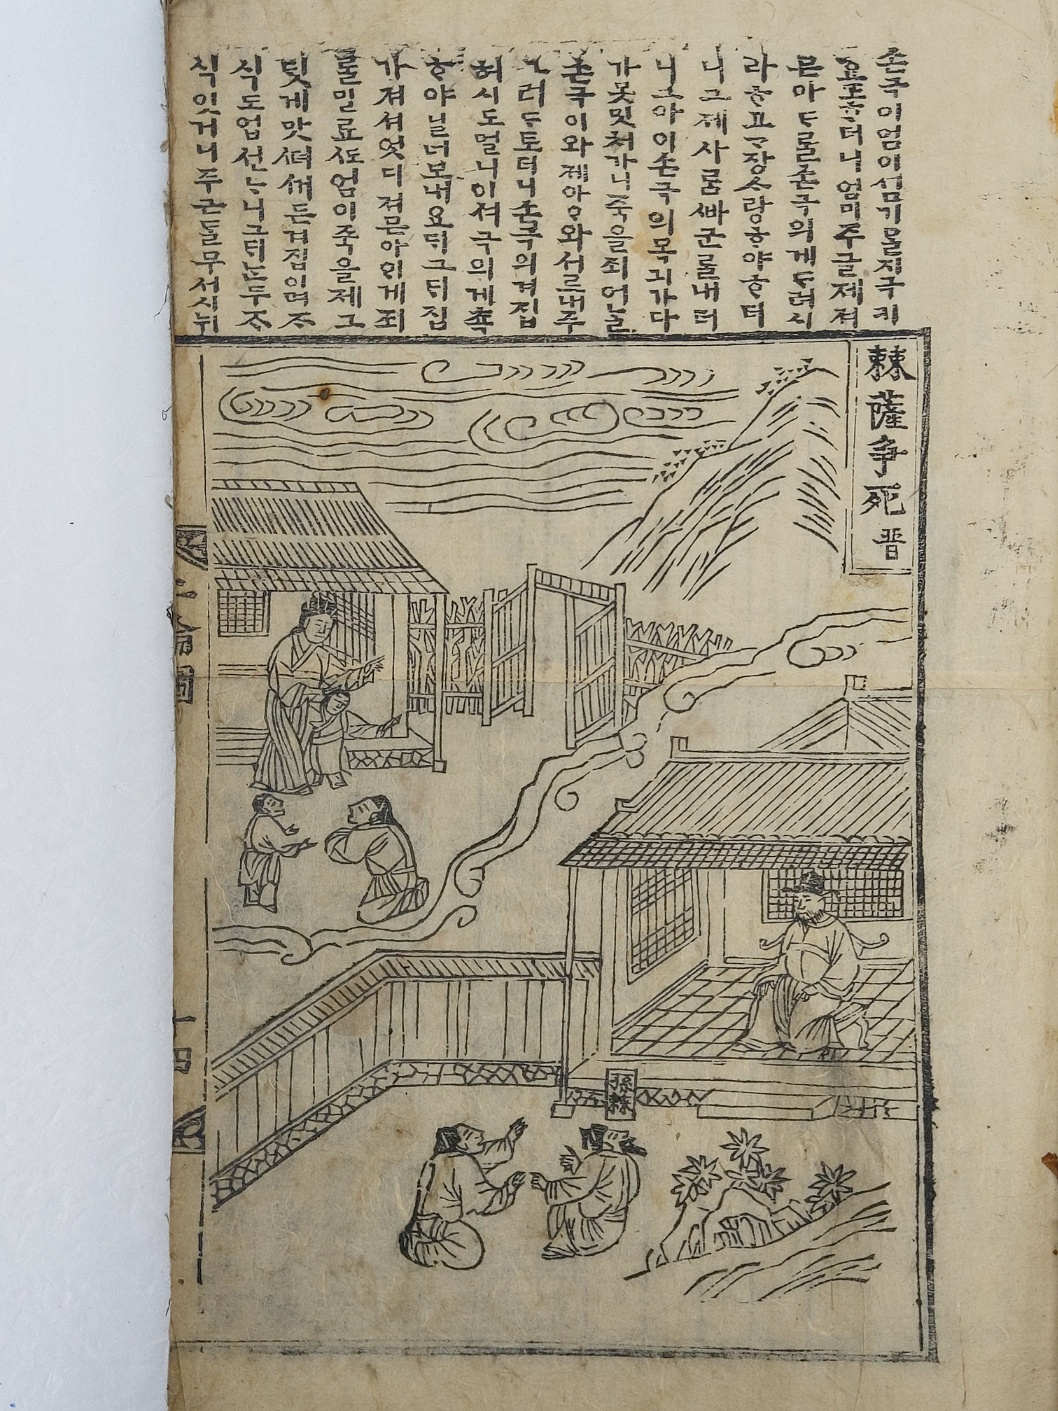 손극이엄이셤기믈지극키
효도ᄒᆞ더니엄미주글제져
믄아ᄃᆞᆯ손극의게ᄃᆞ려시
라ᄒᆞ고ᄀᆞ장ᄉᆞ랑ᄒᆞ야ᄒᆞ더
니그제사ᄅᆞᆷᄲᅡ군ᄅᆞᆯ내더
니그아이손극의목긔가다
가못밋처가니죽을죄어ᄂᆞᆯ
손극이와제아ᄋᆞ와서ᄅᆞ내주
려ᄃᆞ토더니손극의겨집
허시도멀니이셔극의게쵹
ᄒᆞ야닐너보내요ᄃᆡ그ᄃᆡ집
가져셔엇디져믄아ᄋᆡ게죄
ᄅᆞᆯ밀료ᄯᅩ엄이죽을제그
ᄃᆡ게맛뎌
식도업선ᄂᆞ니그ᄃᆡᄂᆞᆫ두ᄌᆞ
식잇거니주근ᄃᆞᆯ무서시뉘
棘薩爭死 晋
二倫圖
十四
孫棘